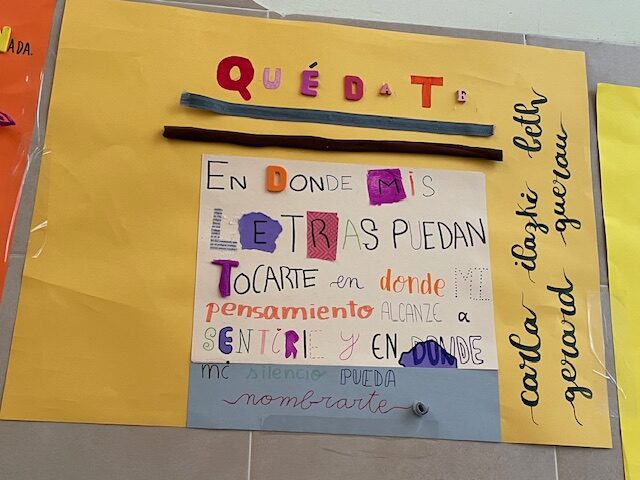 ADA.
QUÉDATE
EN DONDE MIS
LETRAS PUEDAN
TOCARTE en donde MI
pensamiento ALCANZE a
SENTIRIE Y EN DONDE
mi silencio PUEDA
nombrarte
carla ilazki beth
gerard guerau